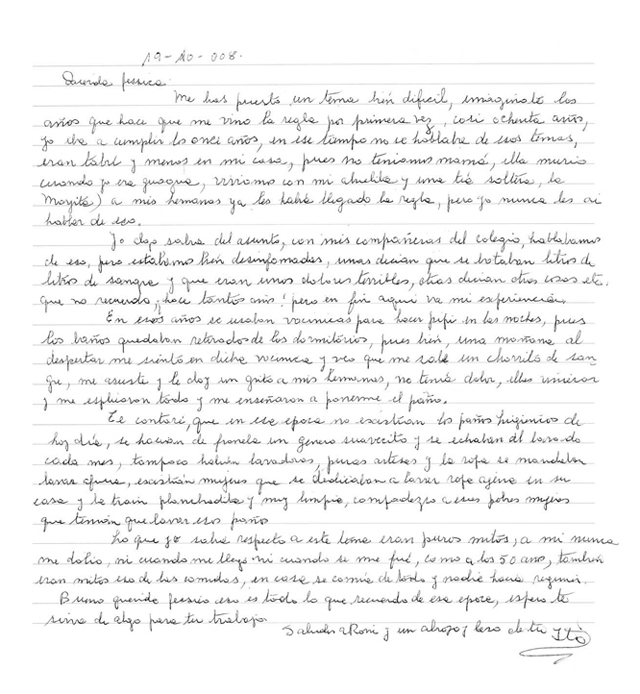 19-10-008.
Querida Jessica:
Me has puesto un tema bién dificil, imaginate los
años que hace que me vino la regla por primera vez, casi ochenta años,
yo iba a cumplir los once años, en ese tiempo no se hablaba de esos temas,
eran tabú y menos en mi casa, pues no teniamos mamá, ella murio
cuando yo era guagua, viviamos con mi abuelita y una tiá soltera, la
Mayita) a mis hemanas ya les habiá llegado la regla, pero yo nunca les oi
hablar de eso.
Yo algo sabia del asunto, con mis compañeras del colegio, hablabamos
de eso, pero estabamos bién desinformadas, unas decian que se botaban litros de
litros de sangre y que eran unos dolores terribles, otras decian otras cosas etc.
que no recuerdo, ¡hace tantos años! pero en fin aqui va mi experiencia.
En esos años se usaban vacinicas para hacer pipi en las noches, pues
los baños quedaban retirados de los dormitórios, pues bién, una mañana al
despertar me siento en dicha vacinica y veo que me sale un chorrito de san-
gre, me asuste y le doy un grito a mis hemanas, no teniá dolor, ellas vinieron
y me esplicaron todo y me enseñaron a ponerme el paño.
Te contaré, que en esa epoca no existian los paños higienicos de
hoy dia, se hacian de franela un genero suavecito y se echaban al lavado
cada mes, tampoco habian lavadoras, puras artesas y la ropa se mandaba
lavar afuera, existián mujeres que se dedicaban a lavar ropa ajena en su
casa y la traián planchadita y muy limpia, compadezco a esas pobres mujeres
que tenián que lavar esos paños
Lo que yo sabiá respecto a este tema eran puros mitos, a mi nunca
me dolio, ni cuando me llego ni cuando se me fué, como a los 50 años, tambien
eran mitos eso de las comidas, en casa se comia de todo y nadie hacia regimen.
Bueno querida Jessica eso es todo lo que recuerdo de esa epoca, espero te
sirva de algo para tu trabajo.
Saludos a Roni y un abrazo y beso de tu Itá